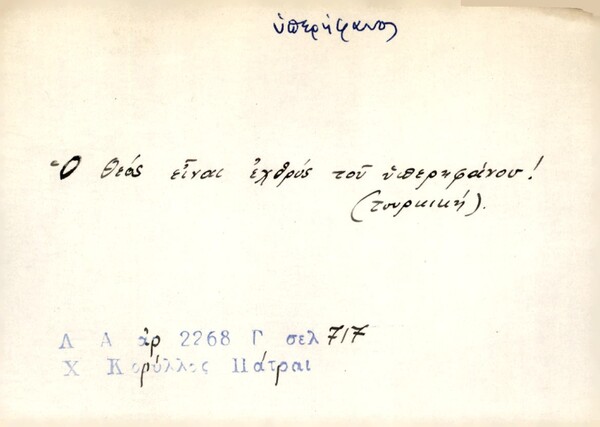 ὑπερήφανος
Ὁ Θεός εἶναι ἐχθρός τοῦ ὑπερηφάνου!
(τουρκική).
Λ Α ἀρ 2268 Γ σελ 717
Χ Κορύλλος Πάτραι